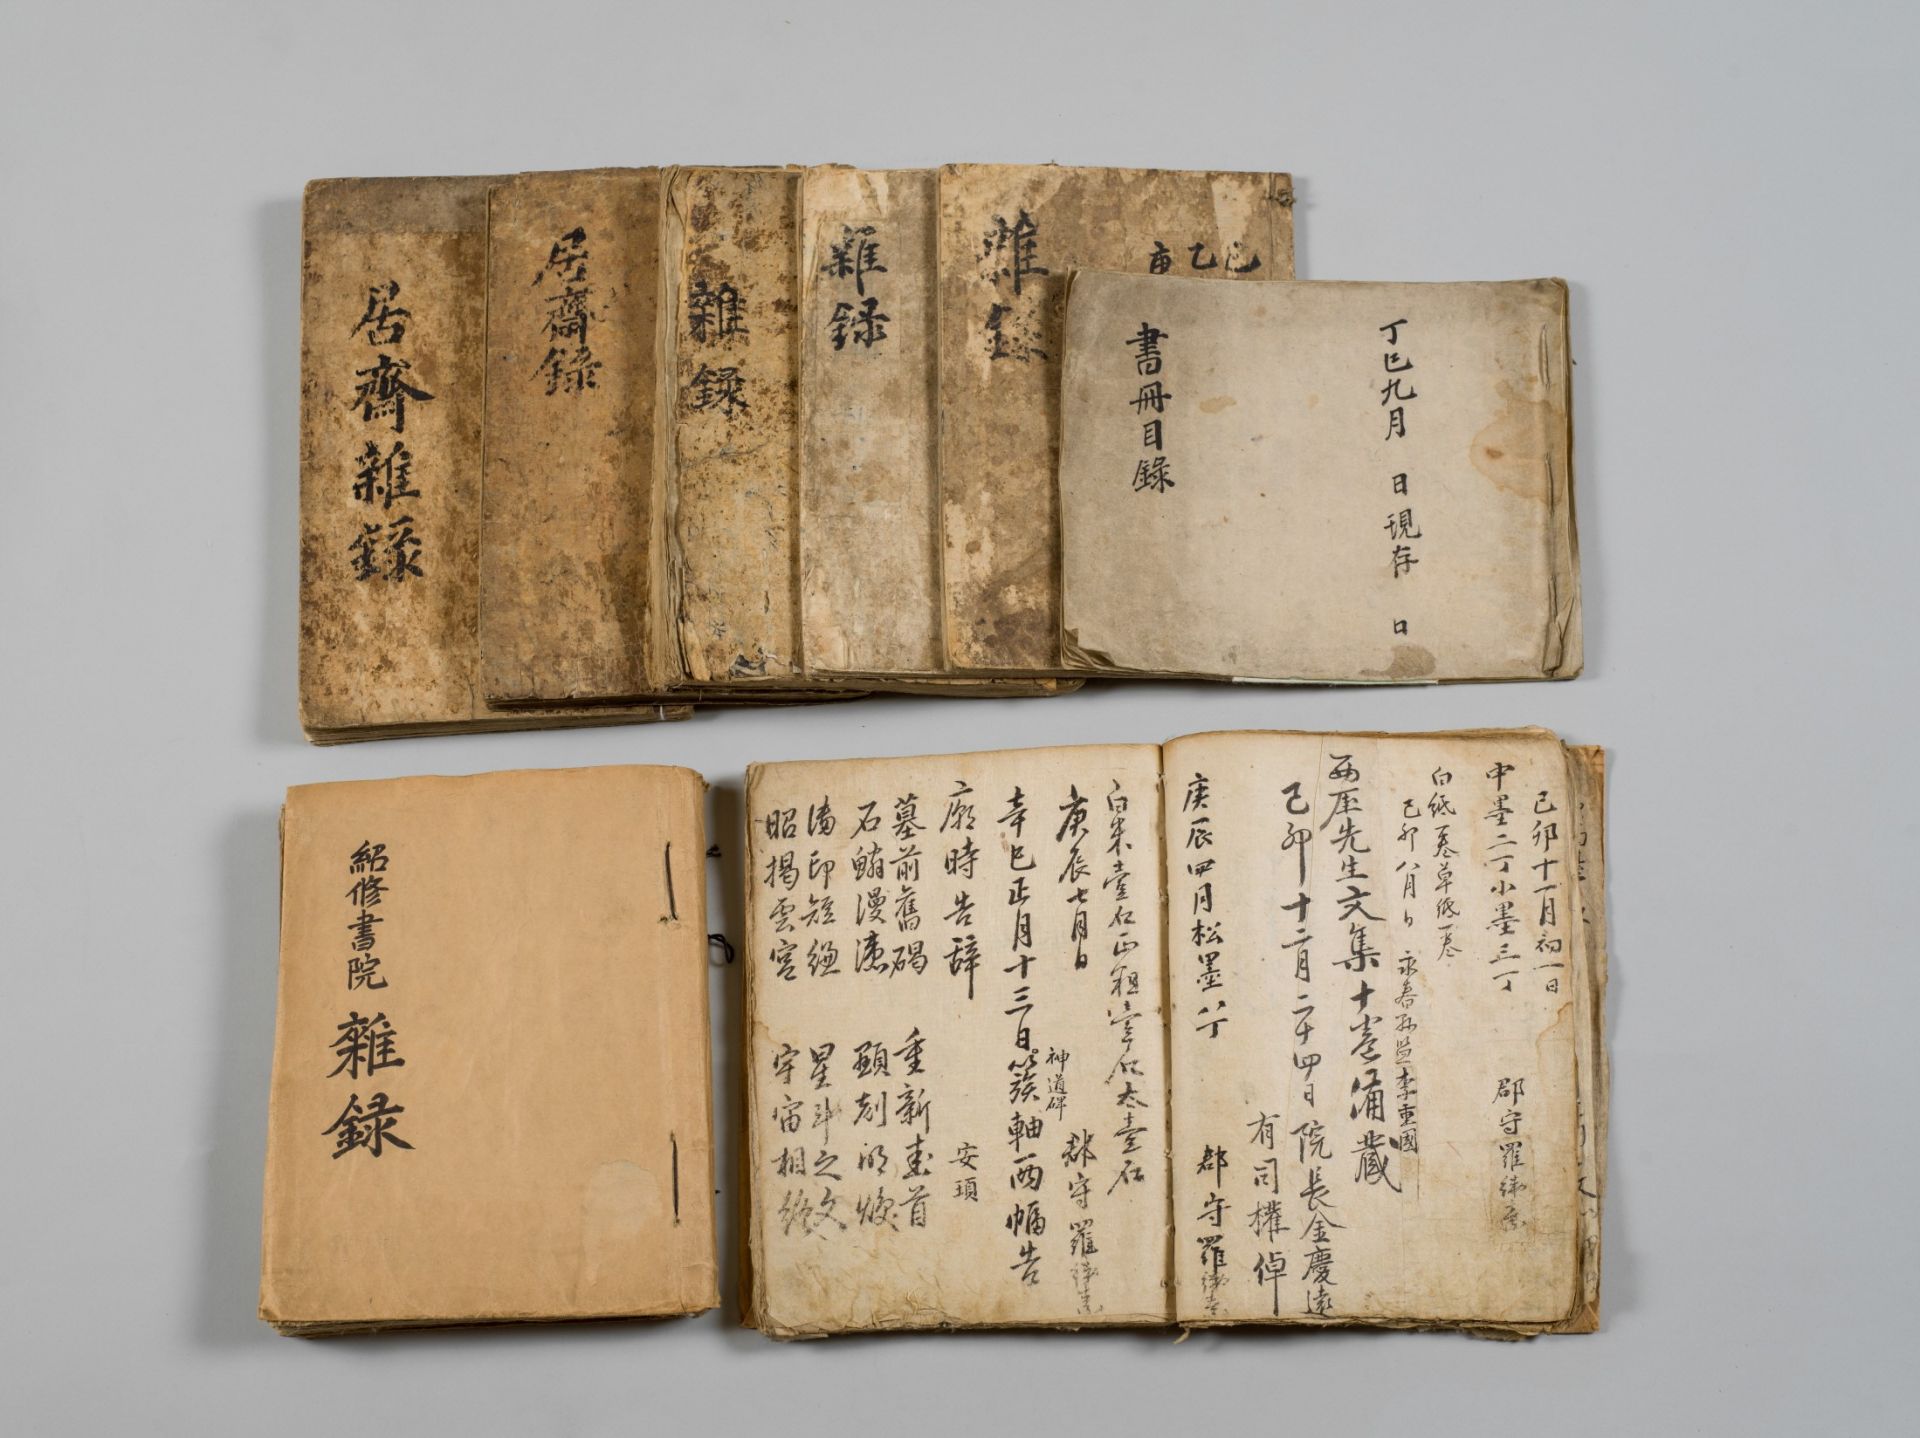 居齋雜錄
居齋錄
雜錄
雜録
雜錄
乙巳
庚
丁巳九月 日現存 口
書冊目錄
紹修書院 雜録
己卯十一月初一日
中墨二丁小墨三丁 郡守羅
白紙一卷草紙一卷
己卯八月日 永春 李重國
西厓先生文集十卷備藏
己卯十二月二十四日院長金慶遠
有司權倬
庚辰四月松墨八丁 郡守羅
白米壹石正租壹石太壹石
庚辰七月日 郡守羅
神道碑
辛巳正月十三日簇軸兩幅告
廟時告辭 安頊
墓前舊碣 重新
石 漫漶 顯刻
印短 星斗之文
昭揭雲宮 宇宙相